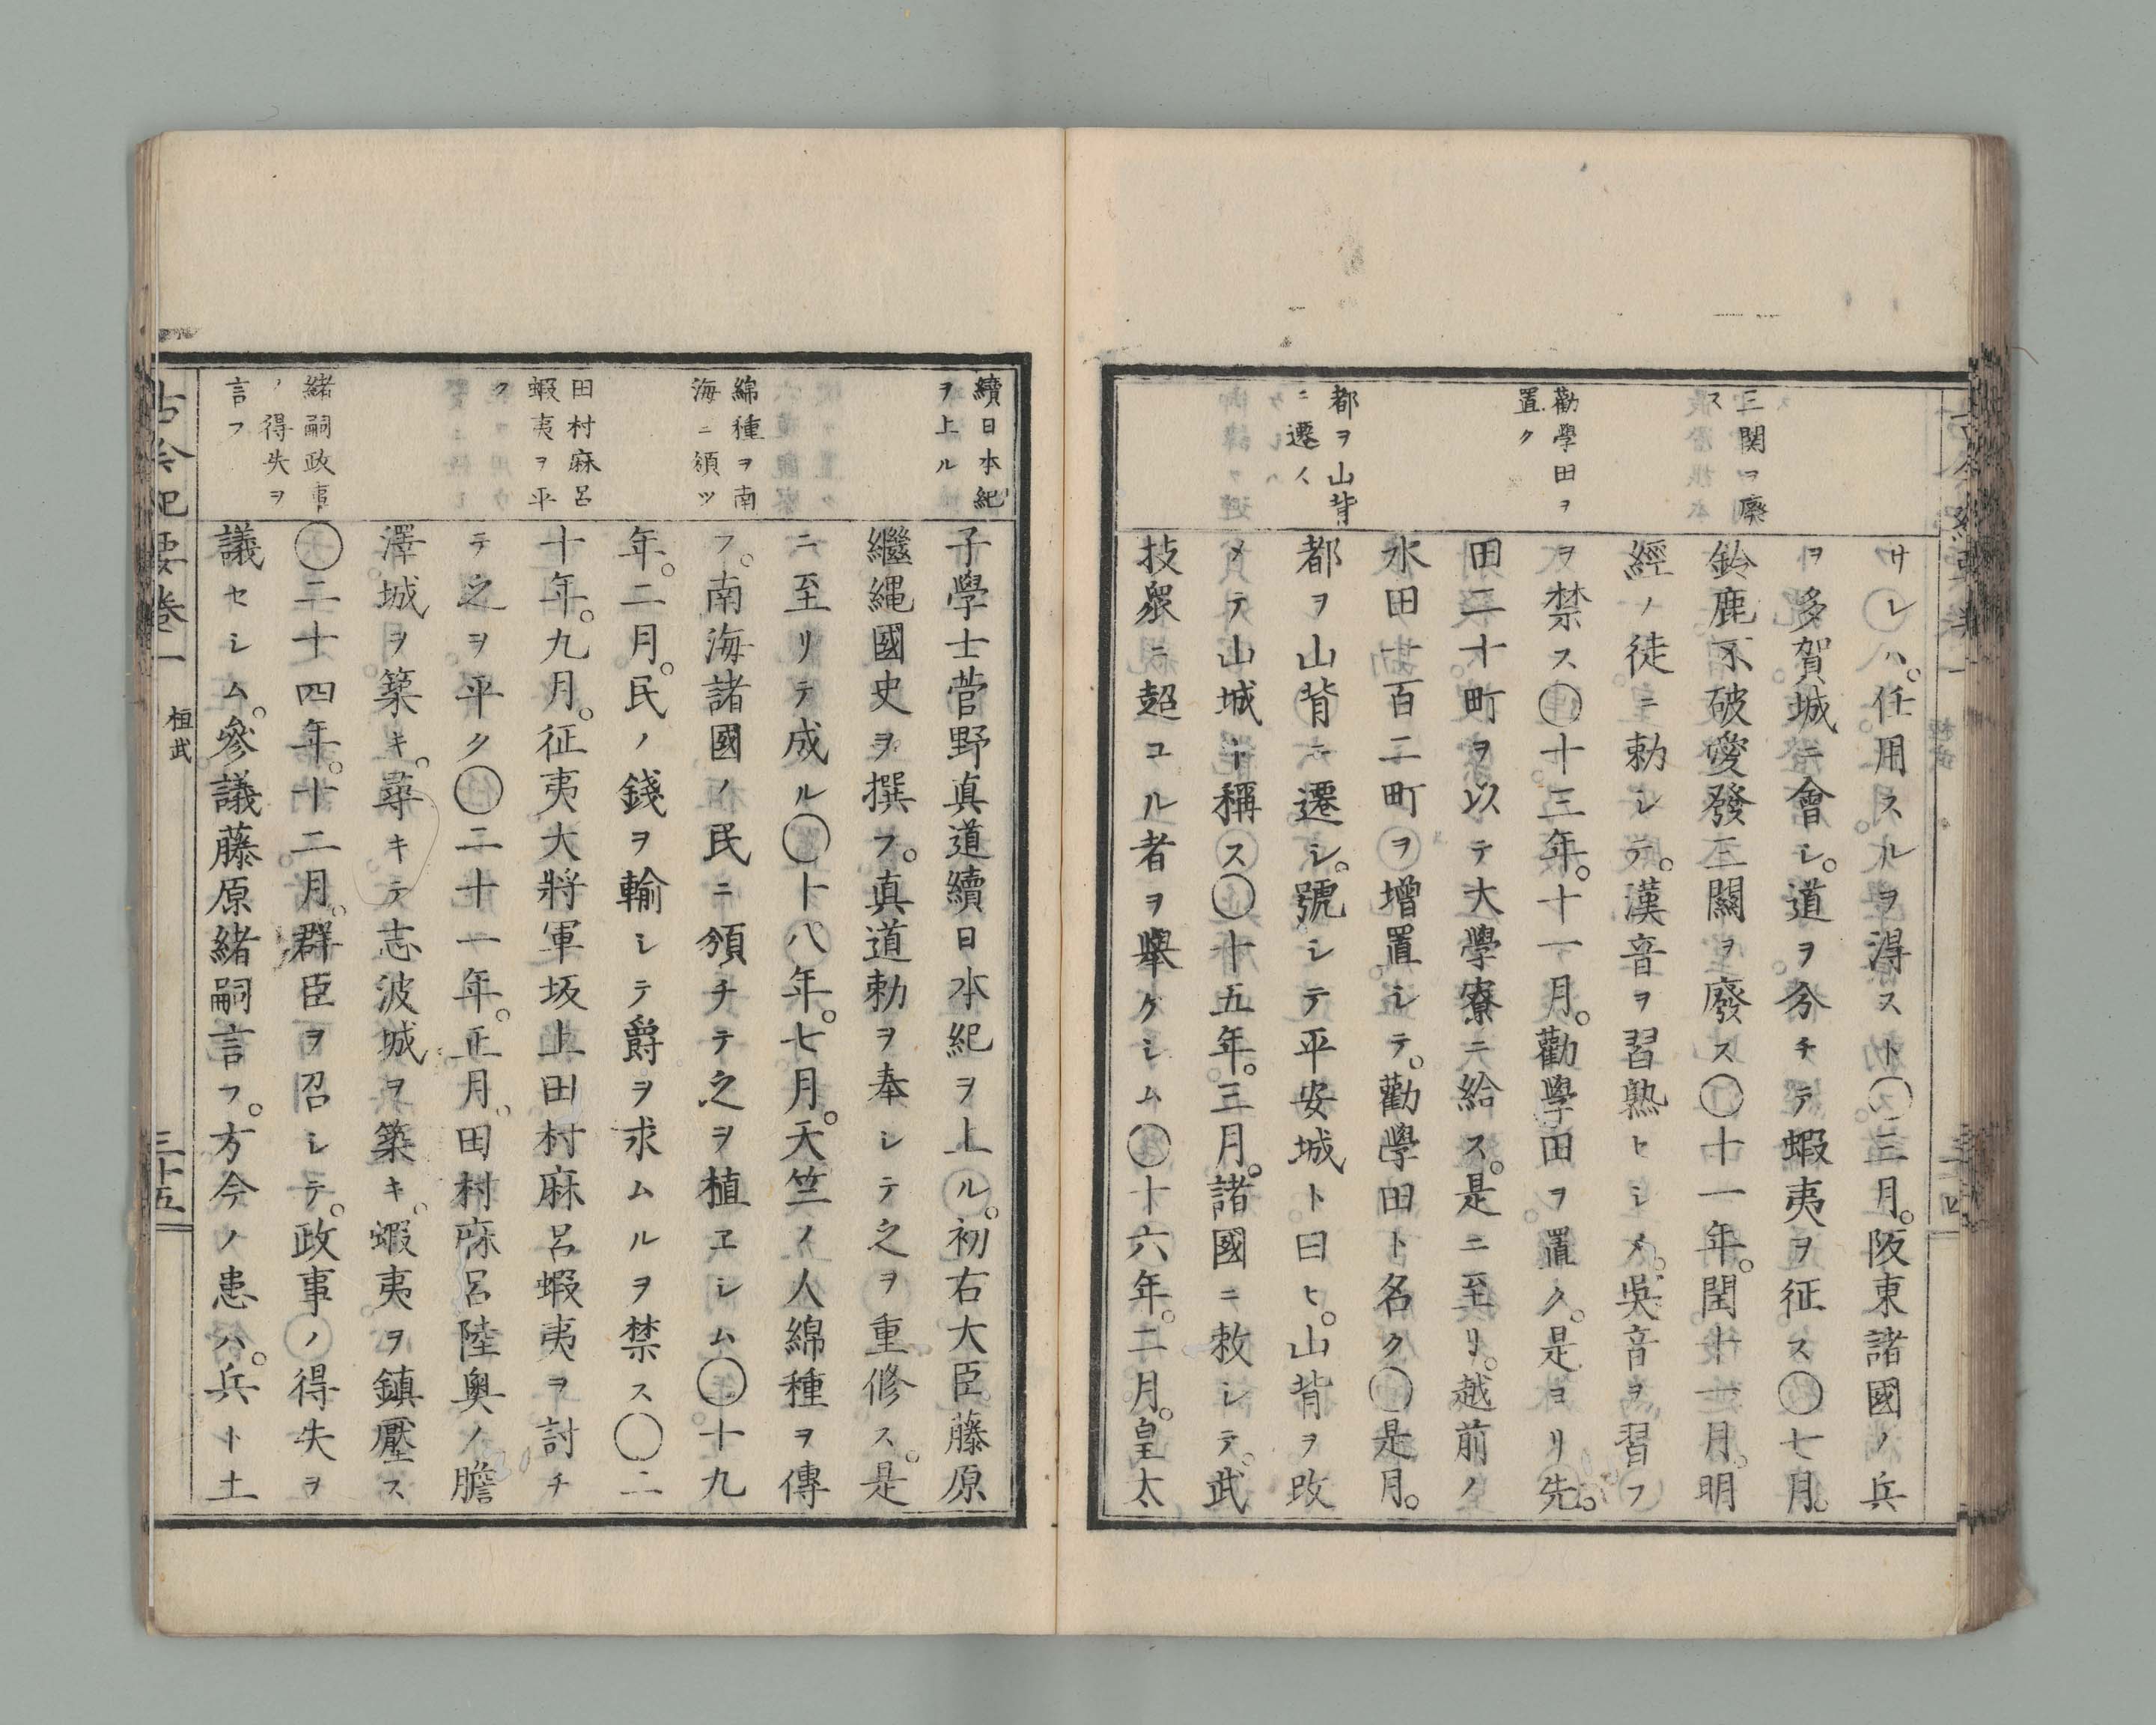 三關ヲ廢
ス
勸學田ヲ
置ク
都ヲ山背
ニ遷ス
サレハ。任用スルヲ得スト〇三月。阪東諸國ノ兵
ヲ多賀城ニ會シ。道ヲ分チテ蝦夷ヲ征ス〇七月。
鈴鹿不破愛發三關ヲ廢ス〇十一年。閏十一月。明
經ノ徒ニ勅シテ。漢音ヲ習熟セシメ。吳音ヲ習フ
ヲ禁ス〇十三年。十一月。勸學田ヲ置ク。是ヨリ先。
田二十町ヲ以テ大學寮ニ給ス。是ニ至リ。越前ノ
水田一百二町ヲ增置シテ。勸學田ト名ク〇是月。
都ヲ山背ニ遷シ。號シテ平安城ト曰ヒ。山背ヲ改
メテ山城ト稱ス〇十五年。三月。諸國ニ敕シテ。武
技衆ニ超ユル者ヲ舉ケシム〇十六年。二月。皇太
續日本紀
ヲ上ル
綿種ヲ南
海ニ頒ツ
田村麻呂
蝦夷ヲ平
ク
緒嗣政事
ノ得失ヲ
言フ
子學士菅野真道續日本紀ヲ上ル。初右大臣藤原
繼繩國史ヲ撰フ。真道勅ヲ奉シテ之ヲ重修ス。是
ニ至リテ成ル〇十八年。七月。天竺ノ人綿種ヲ傳
フ。南海諸國ノ民ニ頒チテ之ヲ植ヱシム〇十九
年。二月。民ノ錢ヲ輸シテ爵ヲ求ムルヲ禁ス〇二
十年。九月。征夷大將軍坂上田村麻呂蝦夷ヲ討チ
テ之ヲ平ク〇二十一年。正月。田村麻呂陸奥ノ膽
澤城ヲ築キ。尋キテ志波城ヲ築キ。蝦夷ヲ鎮壓ス
〇二十四年。十二月。群臣ヲ召シテ。政事ノ得失ヲ
議セシム。參議藤原緒嗣言フ。方今ノ患ハ。兵ト土
古今紀要卷一　桓武　三十五